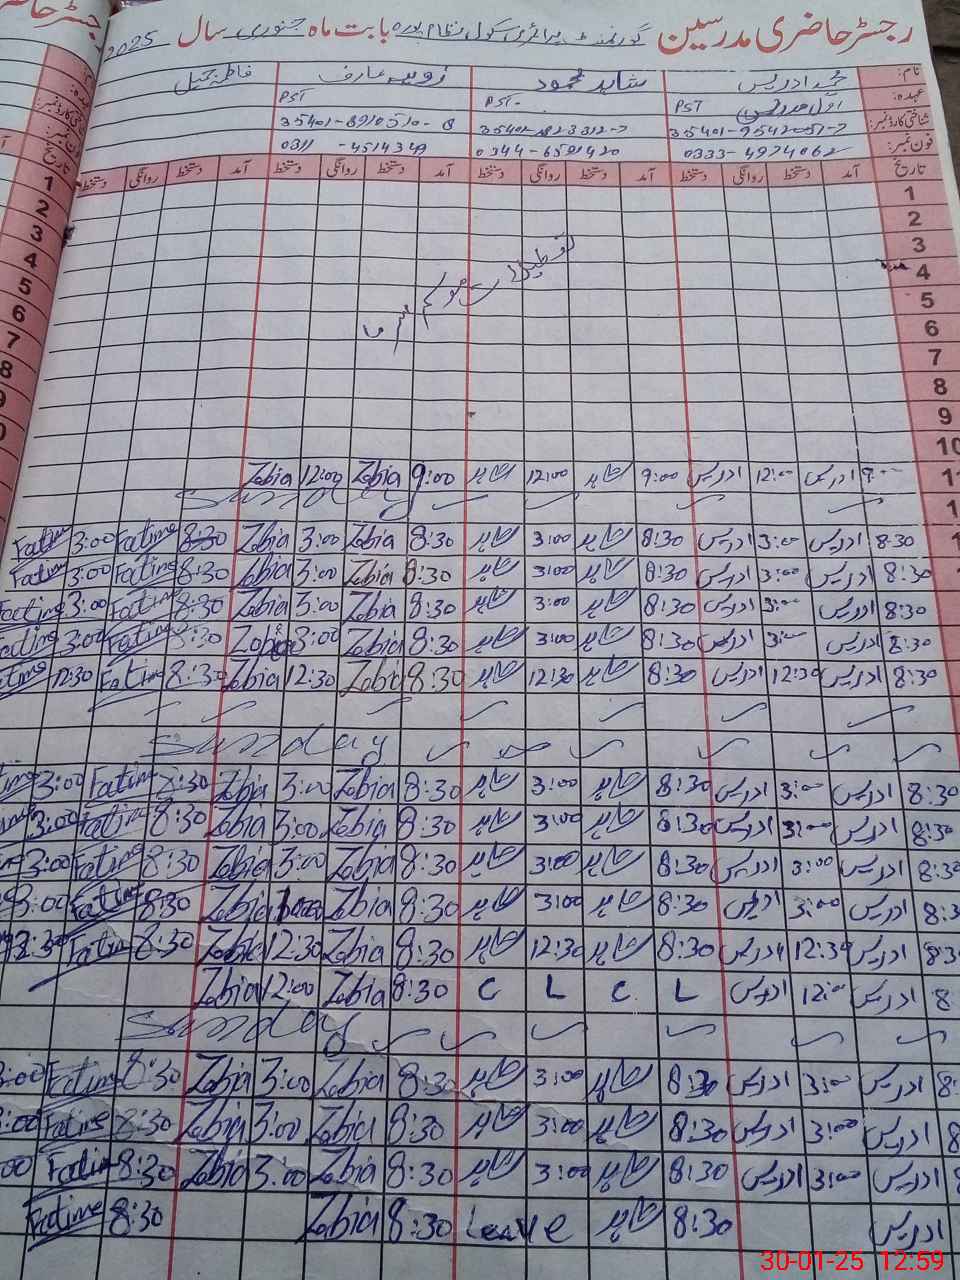 رجسٹر حاضری مدرسین گورنمنٹ پرائمری سکول نظام پورہ بابت ماہ جنوری سال 2025
نام: محمد ادریس شاہد محمود زوبیہ عارف فاطمہ جمیل
عہدہ: PST اول مدرس PST- PST
شناختی کارڈ نمبر: 35401-9542051-7 35401-1823312-7 35401-8910510-8
فون نمبر: 0333-4974062 0344-6591420 0311-4514349
تاریخ آمد دستخط روانگی دستخط آمد دستخط روانگی دستخط آمد دستخط روانگی دستخط آمد دستخط روانگی دستخط تاریخ
1 1
2 2
3 3
4 4
5 5
6 6
7 7
8 8
9
10
تعطیلات موسم سرما
Zobia 12:00 Zobia 9:00 شاہد 12:00 شاہد 9:00 ادریس 12:00 ادریس 9:00
Sunday
Fatima 3:00 Fatima 8:30 Zobia 3:00 Zobia 8:30 شاہد 3:00 شاہد 8:30 ادریس 3:00 ادریس 8:30
Fatima 3:00 Fatima 8:30 Zobia 3:00 Zobia 8:30 شاہد 3:00 شاہد 8:30 ادریس 3:00 ادریس 8:30
Fatima 3:00 Fatima 8:30 Zobia 3:00 Zobia 8:30 شاہد 3:00 شاہد 8:30 ادریس 3:00 ادریس 8:30
Fatima 3:00 Fatima 8:30 Zobia 3:00 Zobia 8:30 شاہد 3:00 شاہد 8:30 ادریس 3:00 ادریس 8:30
12:30 Fatima 8:30 Zobia 12:30 Zobia 8:30 شاہد 12:30 شاہد 8:30 ادریس 12:30 ادریس 8:30
Sunday
3:00 Fatima 8:30 Zobia 3:00 Zobia 8:30 شاہد 3:00 شاہد 8:30 ادریس 3:00 ادریس 8:30
3:00 Fatima 8:30 Zobia 3:00 Zobia 8:30 شاہد 3:00 شاہد 8:30 ادریس 3:00 ادریس 8:30
3:00 Fatima 8:30 Zobia 3:00 Zobia 8:30 شاہد 3:00 شاہد 8:30 ادریس 3:00 ادریس 8:30
3:00 Fatima 8:30 Zobia Zobia 8:30 شاہد 3:00 شاہد 8:30 ادریس 3:00 ادریس 8:3
12:30 Fatima 8:30 Zobia 12:30 Zobia 8:30 شاہد 12:30 شاہد 8:30 ادریس 12:30 ادریس 8:3
Zobia 12:00 Zobia 8:30 C L C L ادریس 12:00 ادریس 8:
Sunday
3:00 Fatima 8:30 Zobia 3:00 Zobia 8:30 شاہد 3:00 شاہد 8:30 ادریس 3:00 ادریس 8:
:00 Fatima 8:30 Zobia 3:00 Zobia 8:30 شاہد 3:00 شاہد 8:30 ادریس 3:00 ادریس 8
00 Fatima 8:30 Zobia 3:00 Zobia 8:30 شاہد 3:00 شاہد 8:30 ادریس 3:00 ادریس 8
Fatima 8:30 Zobia 8:30 Leave شاہد 8:30 ادریس
30-01-25 12:59